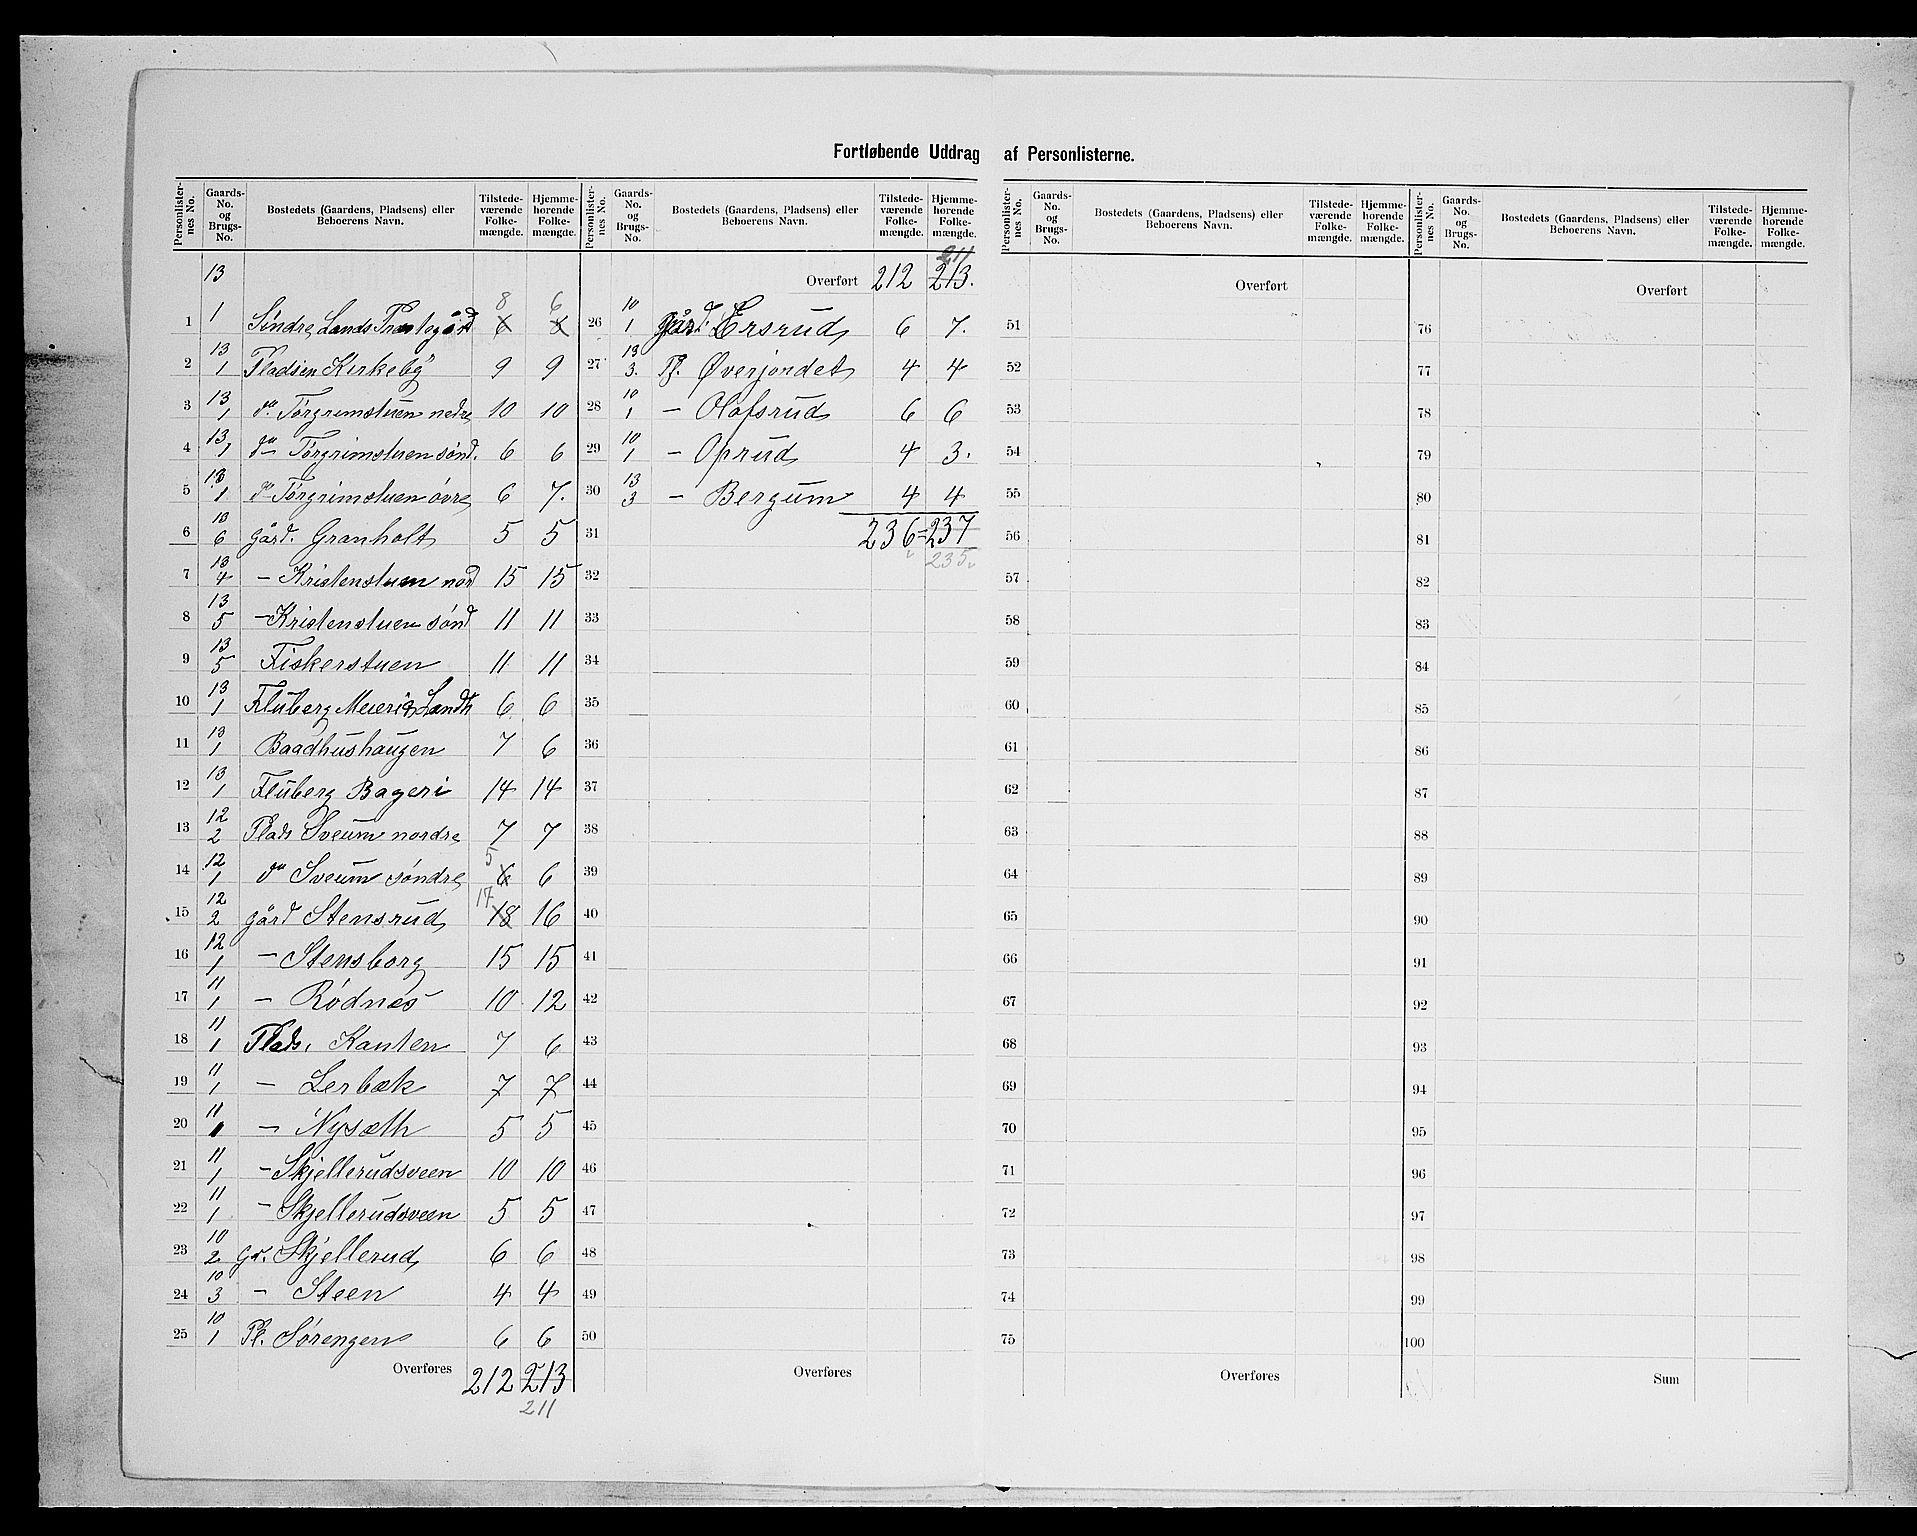 Fortløbende Uddrag af Personlisterne.
Personlister-nes No. Gaards-No. og Brugs-No. Bostedets (Gaardens, Pladsens) eller Beboerens Navn. Tilstede-værende Folke-mængde. Hjemme-hørende Folke-mængde.
13
1 1 Söndre Lands Prestegård 6 8 8 6
2 13 1 Pladsen Kirkeby 9 9
3 13 1 do Torgrimstuen nedre 10 10
4 13 1 do Torgrimstuen sönd. 6 6
5 13 1 do Torgrimstuen övre 6 7.
6 13 6 Gård. Granholt 5 5
7 13 4 - Kristenstuen nord 15 15
8 13 5 - Kristenstuen sönd 11 11
9 13 5 Fiskerstuen 11 11
10 13 1 Fluberg Meieri & Landh 6 6
11 13 1 Baadhushaugen 7 6
12 13 1 Fluberg Bageri 14 14
13 12 2 Plads Sveum nordre 7 7
14 12 1 do Sveum söndre 6 5 6
15 12 2 gård Stensrud 18 17 16
16 12 1 - Stensborg 15 15
17 11 1 - Rödnes 10 12
18 11 1 Plads. Kanten 7 6
19 11 1 - Lerbæk 7 7
20 11 1 - Nysæth 5 5
21 11 1 - Skjellerudsveen 10 10
22 11 1 - Skjellerudsveen 5 5
23 10 2 Gd. Skjellerud 6 6
24 10 3 - Steen 4 4
25 10 1 Pl. Sörengen 6 6
Overføres 212 213
211
Personlister-nes No. Gaards-No. og Brugs-No. Bostedets (Gaardens, Pladsens) eller Beboerens Navn. Tilstede-værende Folke-mængde. Hjemme-hørende Folke-mængde.
211
Overført 212 213.
26 10 1 Gård. Ersrud 6 7.
27 13 3. Pl. Øverjordet 4 4
28 10 1 - Olofsrud 6 6
29 10 1 - Oprud 4 3.
30 13 3 - Bergum 4 4
31 236 = 237
32 235
33
34
35
36
37
38
39
40
41
42
43
44
45
46
47
48
49
50
Overføres
Personlister-nes No. Gaards-No. og Brugs-No. Bostedets (Gaardens, Pladsens) eller Beboerens Navn. Tilstede-værende Folke-mængde. Hjemme-hørende Folke-mængde.
Overført
51
52
53
54
55
56
57
58
59
60
61
62
63
64
65
66
67
68
69
70
71
72
73
74
75
Overføres
Personlister-nes No. Gaards-No. og Brugs-No. Bostedets (Gaardens, Pladsens) eller Beboerens Navn. Tilstede-værende Folke-mængde. Hjemme-hørende Folke-mængde.
Overført
76
77
78
79
80
81
82
83
84
85
86
87
88
89
90
91
92
93
94
95
96
97
98
99
100
Sum